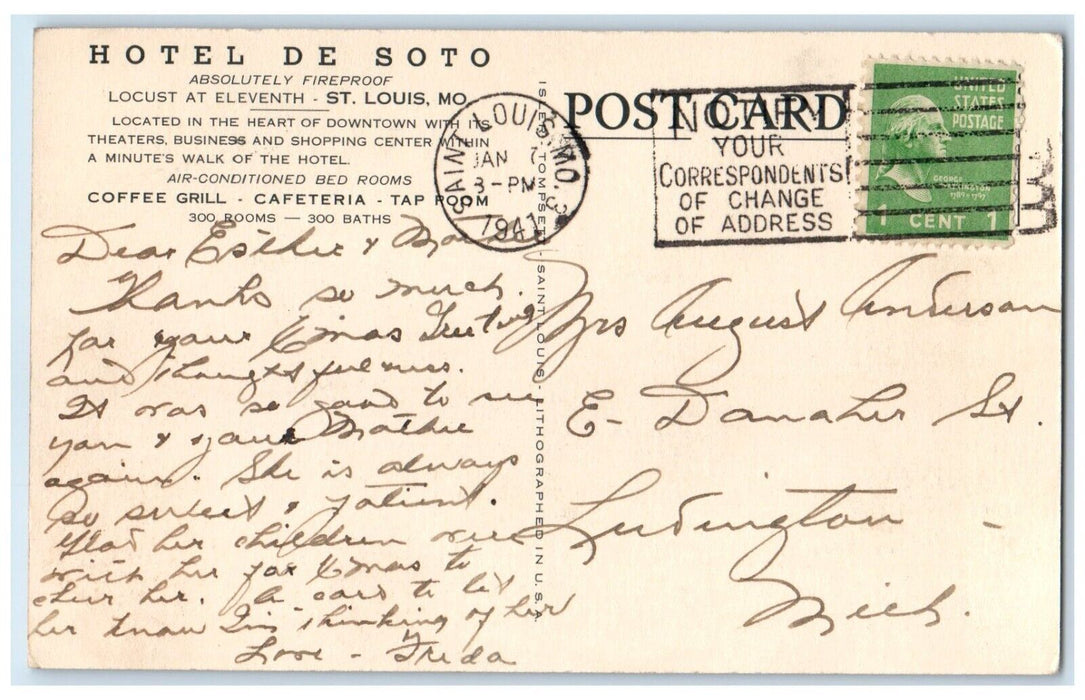 HOTEL DE SOTO
ABSOLUTELY FIREPROOF
LOCUST AT ELEVENTH - ST. LOUIS, MO.
LOCATED IN THE HEART OF DOWNTOWN WITH ITS
THEATERS, BUSINESS AND SHOPPING CENTER WITHIN
A MINUTE'S WALK OF THE HOTEL.
AIR-CONDITIONED BED ROOMS
COFFEE GRILL - CAFETERIA - TAP ROOM
300 ROOMS — 300 BATHS
Dear Esther &
Thanks so much
for your Xmas Greeting
and thoughtfulness.
It was so good to see
you & your Mother
again. She is always
so sweet & patient.
Glad her children were
with her for Xmas to
cheer her. A card to let
her know I'm thinking of her
Love - Freda
TOMPSED - SAINT LOUIS - LITHOGRAPHED IN U.S.A.
POST CARD
SAINT LOUIS, MO.
JAN 7
3-PM
1941
NOTIFY
YOUR
CORRESPONDENTS
OF CHANGE
OF ADDRESS
UNITED
STATES
POSTAGE
GEORGE
WASHINGTON
1789-1797
1 CENT 1
Mrs August Anderson
E - Danaher St.
Ludington -
Mich.